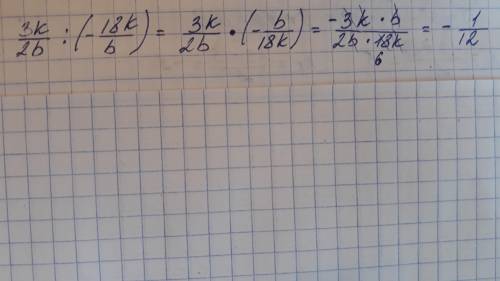 3k/2b : (- 18k/b) = 3k/2b • (- b/18k) = -3k · b/2b · 18k = - 1/12
6